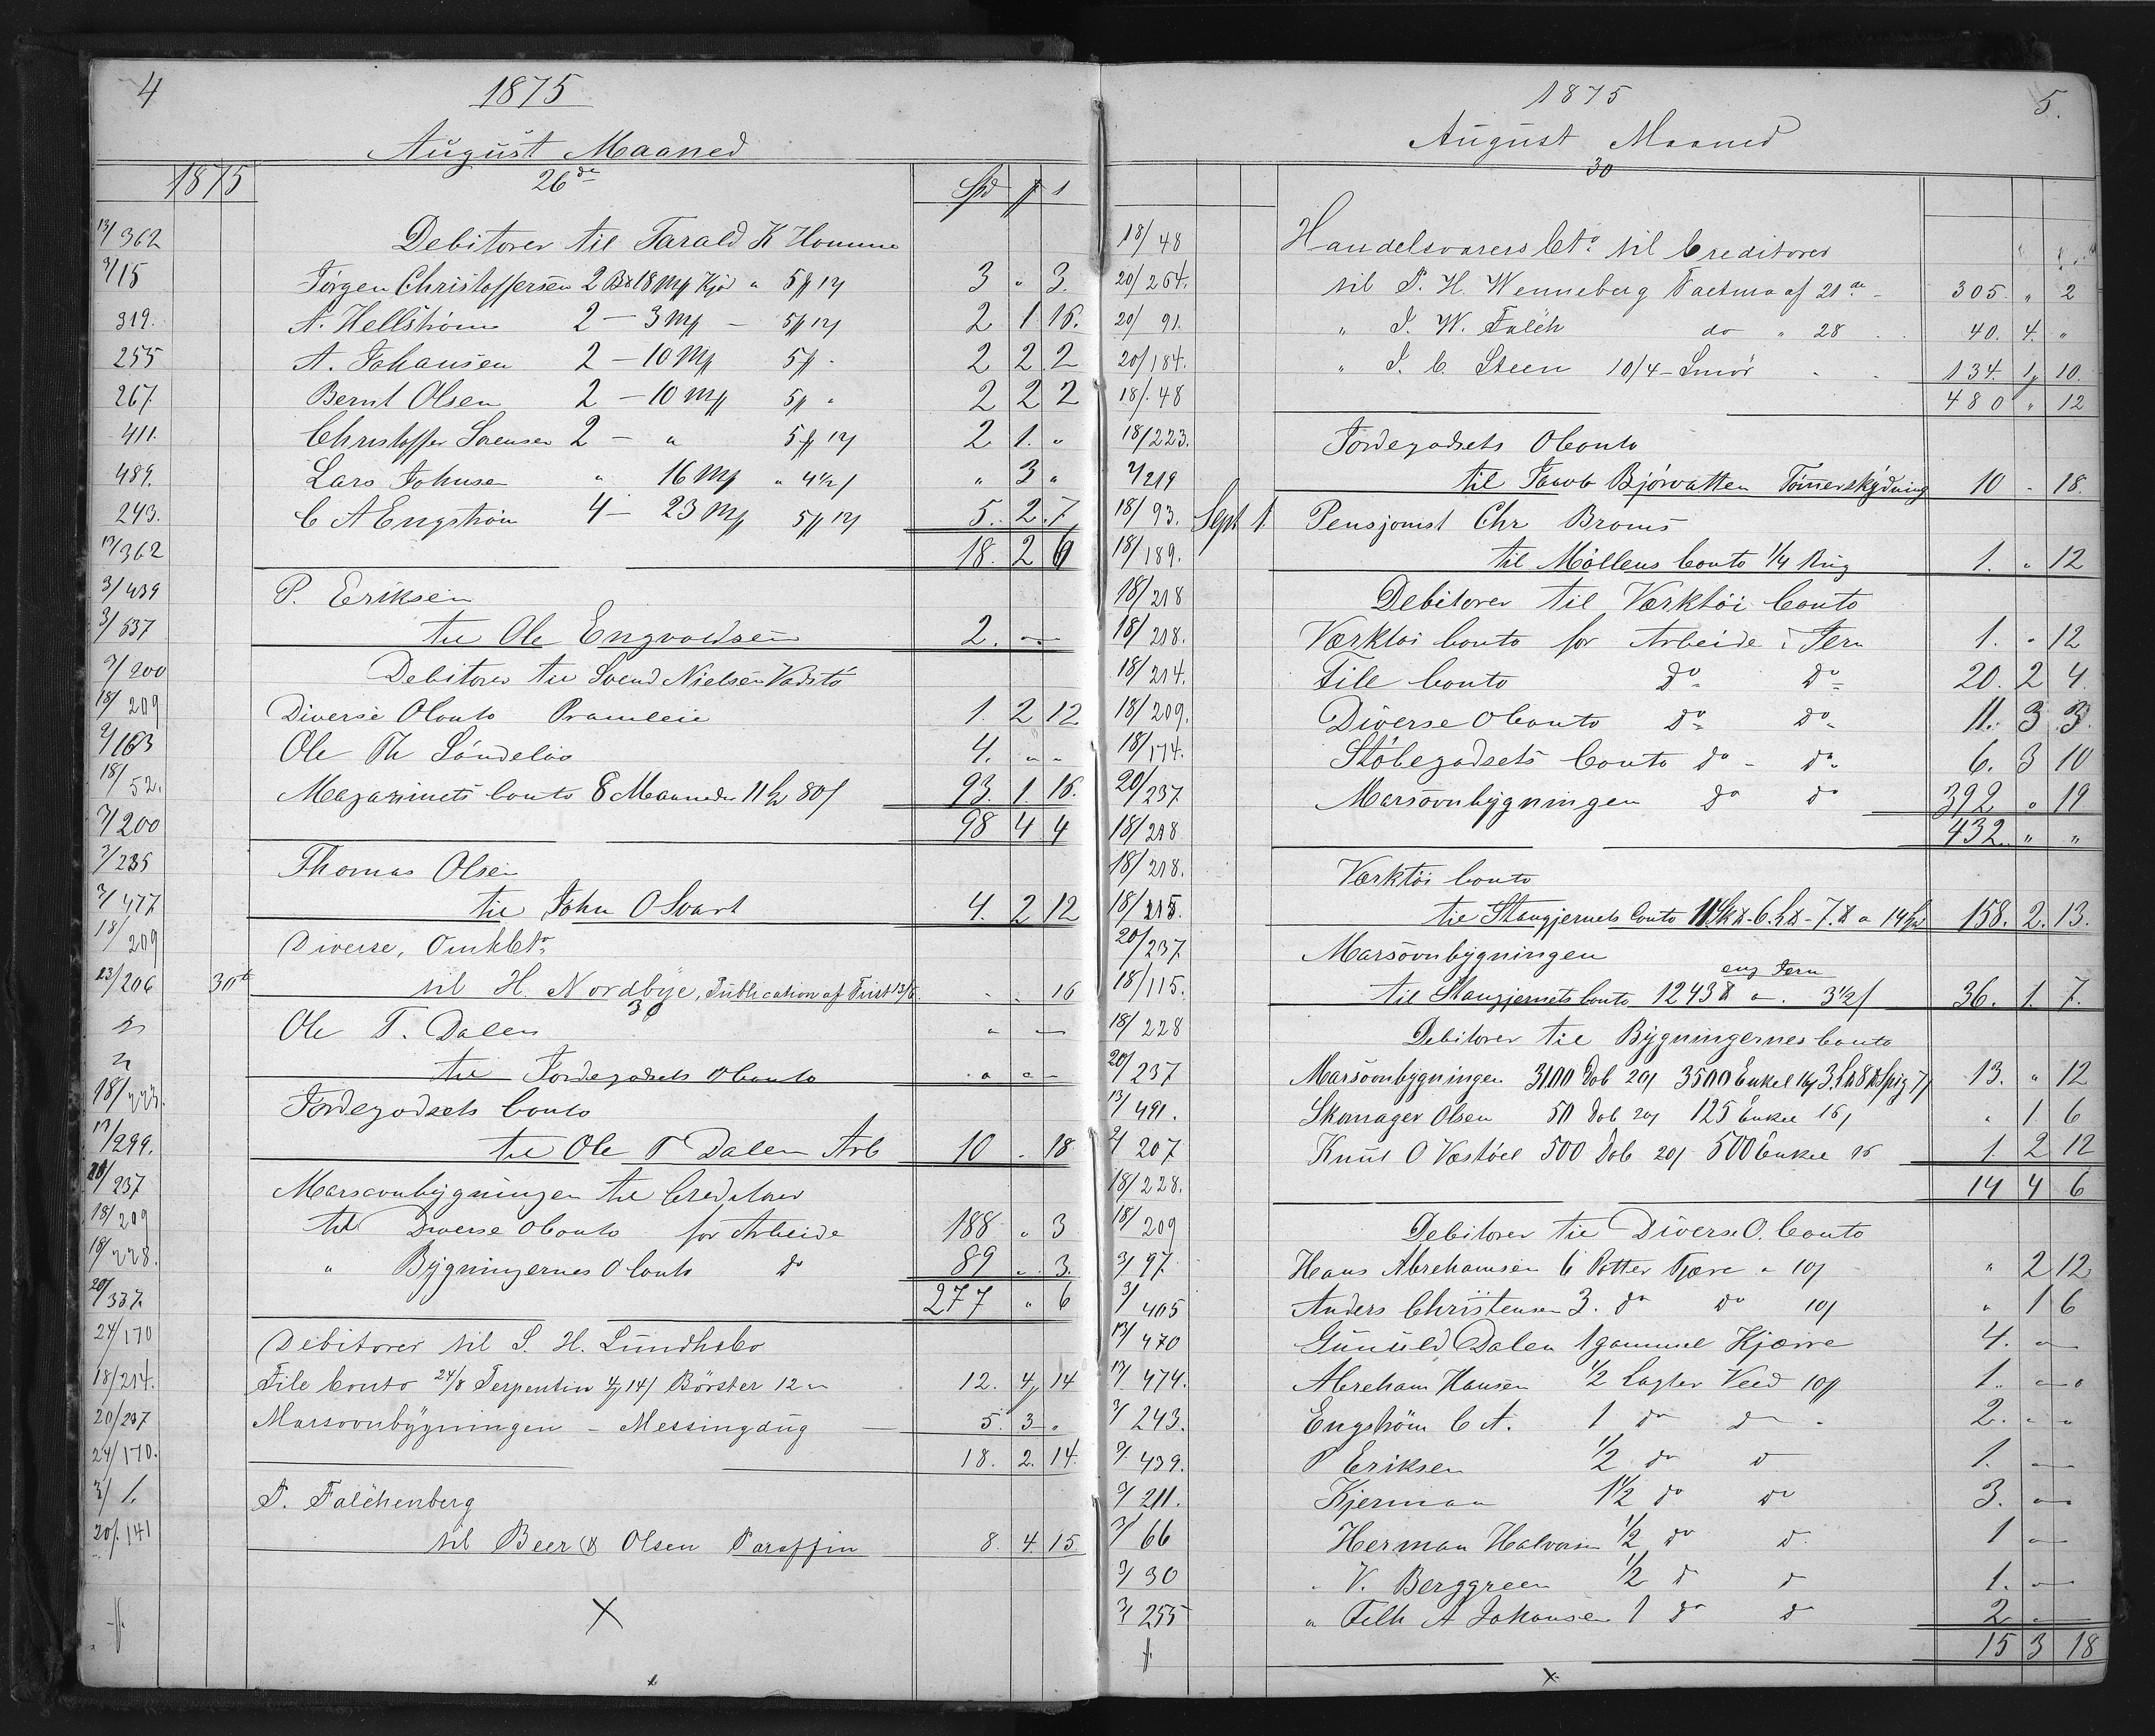 4
1875
August Maaned
1875 26de Spd
13/362 Debitorer til Tarald K Homme
3/15 Jörgen Christoffersen 2 18 Kjöd 3 " 3.
319. A. Hellström 2 — 3 — 2 1 15.
255 A. Johansen 2 — 10 2 2 2
267 Bernt Olsen 2 — 10 2 2 2
411. Christoffer Sörensen 2 — " 2. 1. "
489. Lars Johnsen " 16 " 4½ " 3 "
243. C A Engström 4 — 23 5. 2. 7
13/362 18. 2 6
3/439 P. Eriksen
3/537 til Ole Engvoldsen 2. —
3/200 Debitorer til Svend Nielsen Vadstö
18/209 Diverse OConto Pramleie 1. 2 12
2/163 Ole Th Söndeløs 4. " "
18/52. Magazinets Conto 8 Maaneder 93. 1. 16.
3/200 98 4 4
3/235 Thomas Olsen
3/477 til John O Svart 4. 2 12
18/209 Diverse, OmkCto
23/206 30te til H. Nordbye, Publication af 13/6 " . 16
30
Ole T. Dalen " —
til Jordegodsets OConto " " —
18/223. Jordegodsets Conto
13/299. til Ole T Dalen Arb 10 . 18
20/237 Marsovnbygningen til Creditorer
18/209 til Diverse OConto for Arbeide 188 " 3
18/228. " Bygningernes OConto do 89 " 3.
20/337. 277 " 6
24/170 Debitorer til S. H. Lundh
18/214. File Conto 24/8 Terpentin 4/14/ Börster 12 " 12. 4 14
20/237 Marsovnbygningen — Messingdug — 5. 3 "
24/170. 18. 2. 14.
3/1. P. Falchenberg
20/141 til Beer & Olsen Paraffin 8. 4. 15
5.
1875
August Maaned
30
18/48 Handelsvarers Cto til Creditorer
20/264. til P. H. Wenneberg Factura af 21de — 305. " 2
20/91. " J. W. Falch do " 28 40. 4. "
20/184. " J. C. Steen 10/4 — Smör 134. 1 10.
18/48 480 " 12
18/223. Jordegodsets OConto
2/219 til Jacob Björvatten Tömmerskydning 10 " 18.
18/93. Sept 1. Pensjonist Chr Broms
18/189. til Möllens Conto ¼ Rug 1. " 12
18/218 Debitorer til Værktöi Conto
18/218. Værktöi Conto for Arbeide i Jern 1. " 12
18/214. File Conto do do 20. 2 4.
18/209. Diverse OConto do do 11. 3 3.
18/174. Stöbegodsets Conto do — do 6. 3 10
20/237 Marsovnbygningen do do 392 " 19
18/218 432. " "
18/218. Værktöi Conto
18/215. til Stangjernets Conto 158. 2. 13.
20/237 Marsovnbygningen
eng Jern
18/115. til Stangjernets Conto 1243 a . 3½ 36. 1. 7.
18/228 Debitorer til Bygningernes Conto
20/237 Marsovnbygningen 3100 Dob 20/ 3500 Enkel 13. " 12
13/491. Skomager Olsen 50 Dob 20/ 125 Enkel 16/ " 1 6
2/207 Knut O Væstöel 500 Dob 20/ 500 Enkel 16 1. 2 12
18/228. 14 4 6
18/209 Debitorer til Diverse O. Conto
3/97. Hans Abrehamsen 6 Potter Tjære a 10/ " 2 12
3/405 Anders Christensen 3. do do 10/ " 1 6
13/470 Gunuld Dalen 1 gammel Kjærre 4. —
13/474. Abreham Hansen ½ Lagter Veed 1. " "
3/243. Engström C A. 1 do do 2. " "
3/439. P Eriksen ½ do do 1. —
3/211. Kjerman 1½ do do 3. —
3/66 Herman Halvorsen ½ do do 1 —
3/30 V. Berggreen ½ do do 1. —
3/255 " A Johansen 1 do do 2 —
15 3 18